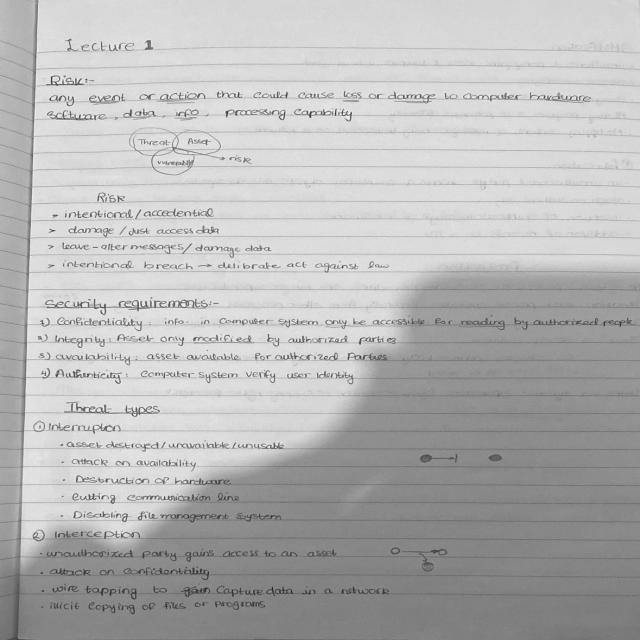 Lecture 1
Risk:-
any event or action that could cause loss or damage to computer hardware
software, data, info, processing capability
Threat Asset
vulnerability → risk
Risk
> intentional/accedential
> damage / Just access data
> leave - alter messages/ damage data
> intentional breach → delibrate act against law
Security requirements:-
1) Confidentiality: info. in computer system only be accessible for reading by authorized people
2) Integrity: Asset only modified by authorized parties
3) availability: asset available for authorized Parties
4) Authenticity: Computer system verify user identity
Threat types
① Interruption
· asset destroyed/unavailable/unusable
· attack on availability
· Destruction of hardware
· Cutting communication line
· Disabling file management system
② Interception
· unauthorized party gains access to an asset
· attack on confidentiality
· wire tapping to Capture data in a network
· illicit copying of files or programs